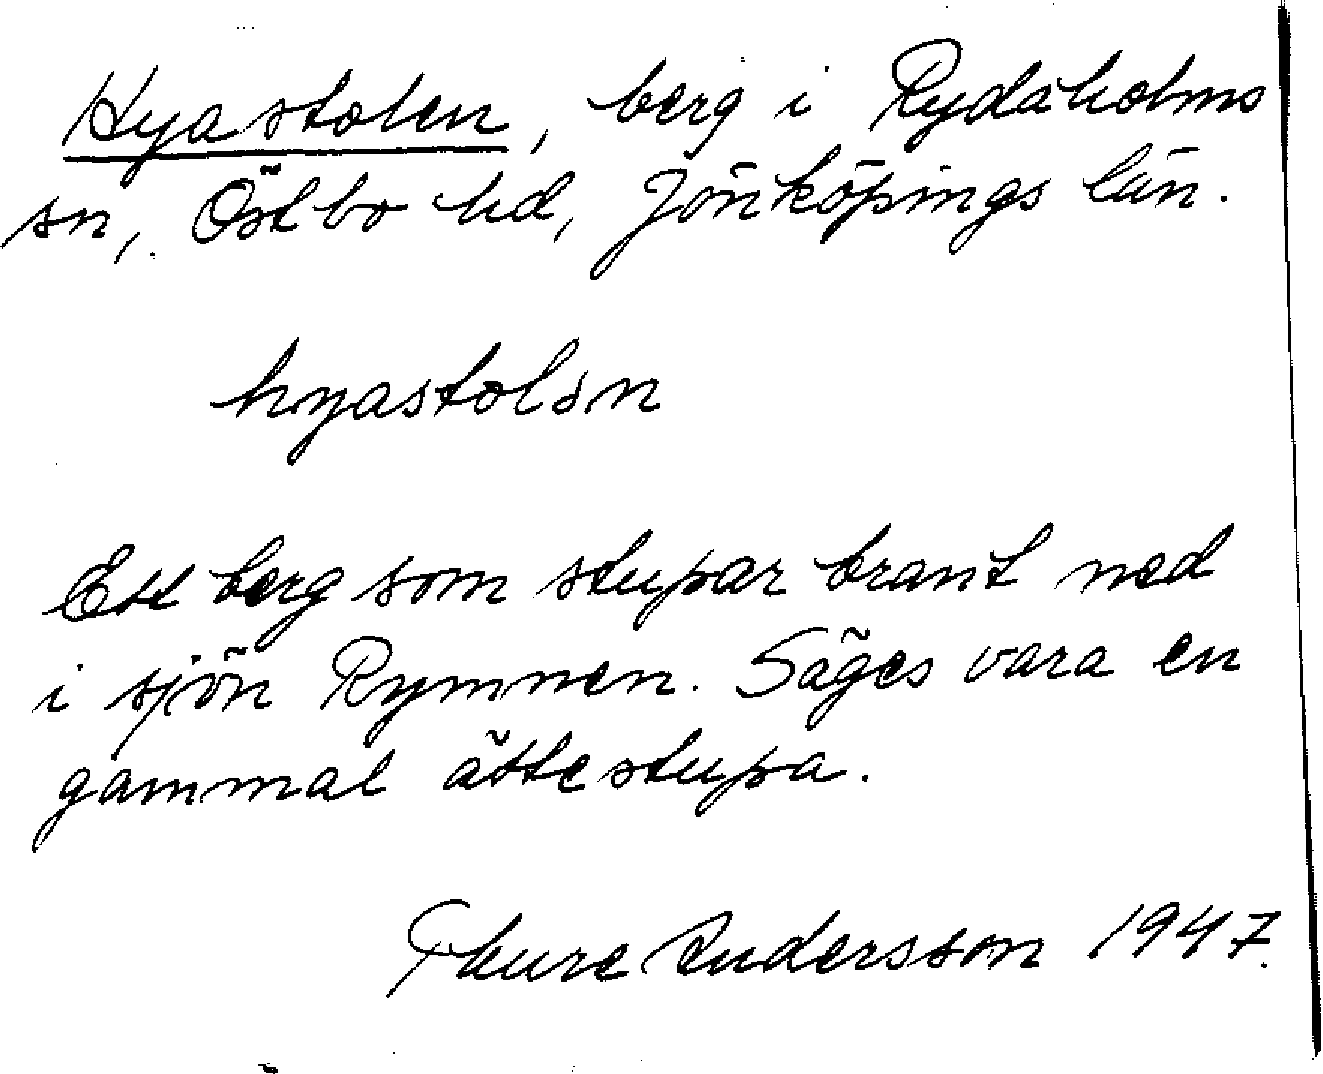 Hyastolen, berg i Rydaholms
sn, Östbo hd, Jönköpings län.
hyastolən
Ett berg som stupar brant ned
i sjön Rymnen. Säges vara en
gammal ättestupa.
Thure Andersson 1947.